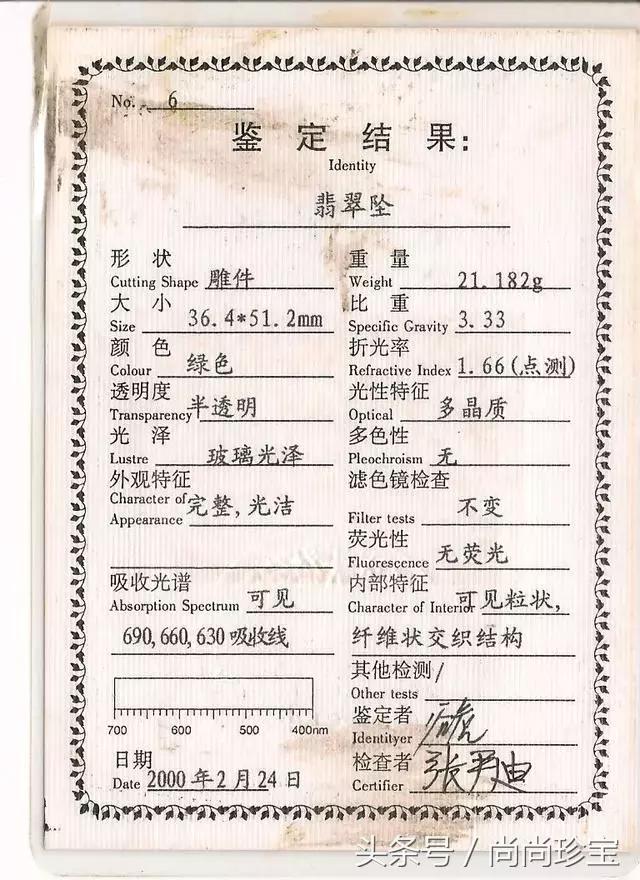 No. 6
鉴定结果:
Identity
翡翠坠
形状
Cutting Shape 雕件
重量
Weight 21.182g
大小
Size 36.4*51.2mm
比重
Specific Gravity 3.33
颜色
Colour 绿色
折光率
Refractive Index 1.66(点测)
透明度
Transparency 半透明
光性特征
Optical 多晶质
光泽
Lustre 玻璃光泽
多色性
Pleochroism 无
外观特征
Character of
Appearance 完整,光洁
滤色镜检查
Filter tests 不变
荧光性
Fluorescence 无荧光
吸收光谱
Absorption Spectrum 可见
690,660,630吸收线
内部特征
Character of Interior 可见粒状,
纤维状交织结构
其他检测/
Other tests
700 600 500 400nm
鉴定者
Identityer
检查者
Certifier 张
日期
Date 2000年2月24日
头条号 / 尚尚珍宝